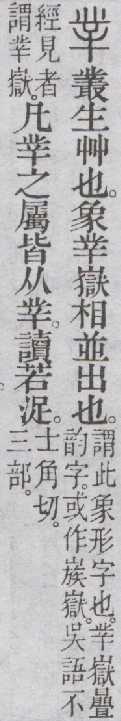 丵叢生艸也。象丵嶽相並出也。謂此象形字也。丵嶽疊
韵字。或作嶽。吳語不
經見者
謂丵嶽。凡丵之屬皆从丵。讀若浞。士角切。
三部。